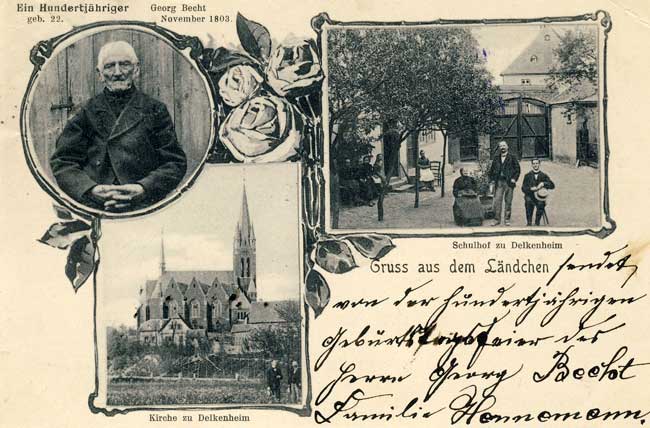 Ein Hundertjähriger Georg Becht
geb. 22. November 1803.
Schulhof zu Delkenheim
Gruss aus dem Ländchen sendet,
von der hundertjährigen
Geburtstagsfeier des
Herrn Georg Becht
Familie Hennemann.
Kirche zu Delkenheim